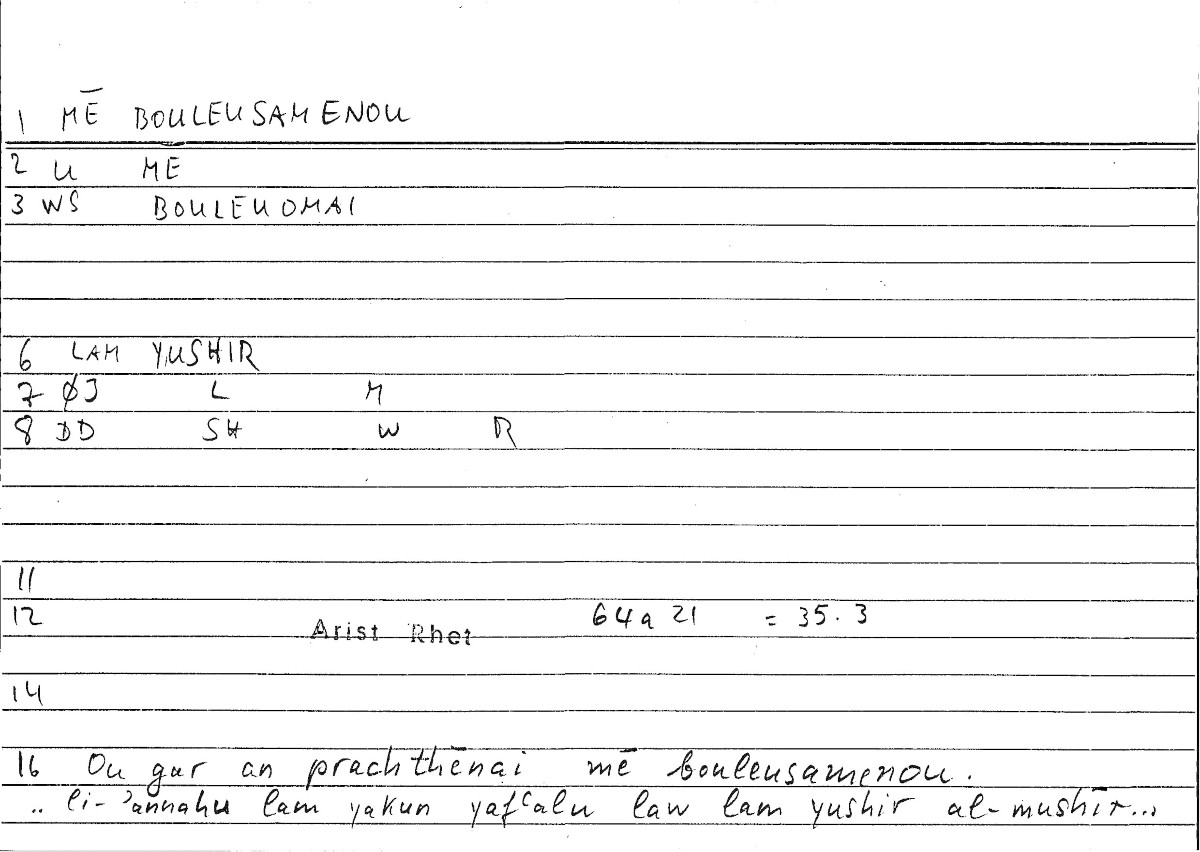 1 MĒ BOULEUSAMENOU
2 U ME
3 WS BOULEUOMAI
6 LAM YUSHIR
7 ØJ L M
8 DD SH W R
11
12 Arist Rhet 64a 21 = 35.3
14
16 Ou gar an prachthēnai mē bouleusamenou.
.. li-ʾannahu lam yakun yafʿalu law lam yushir al-mushīr...